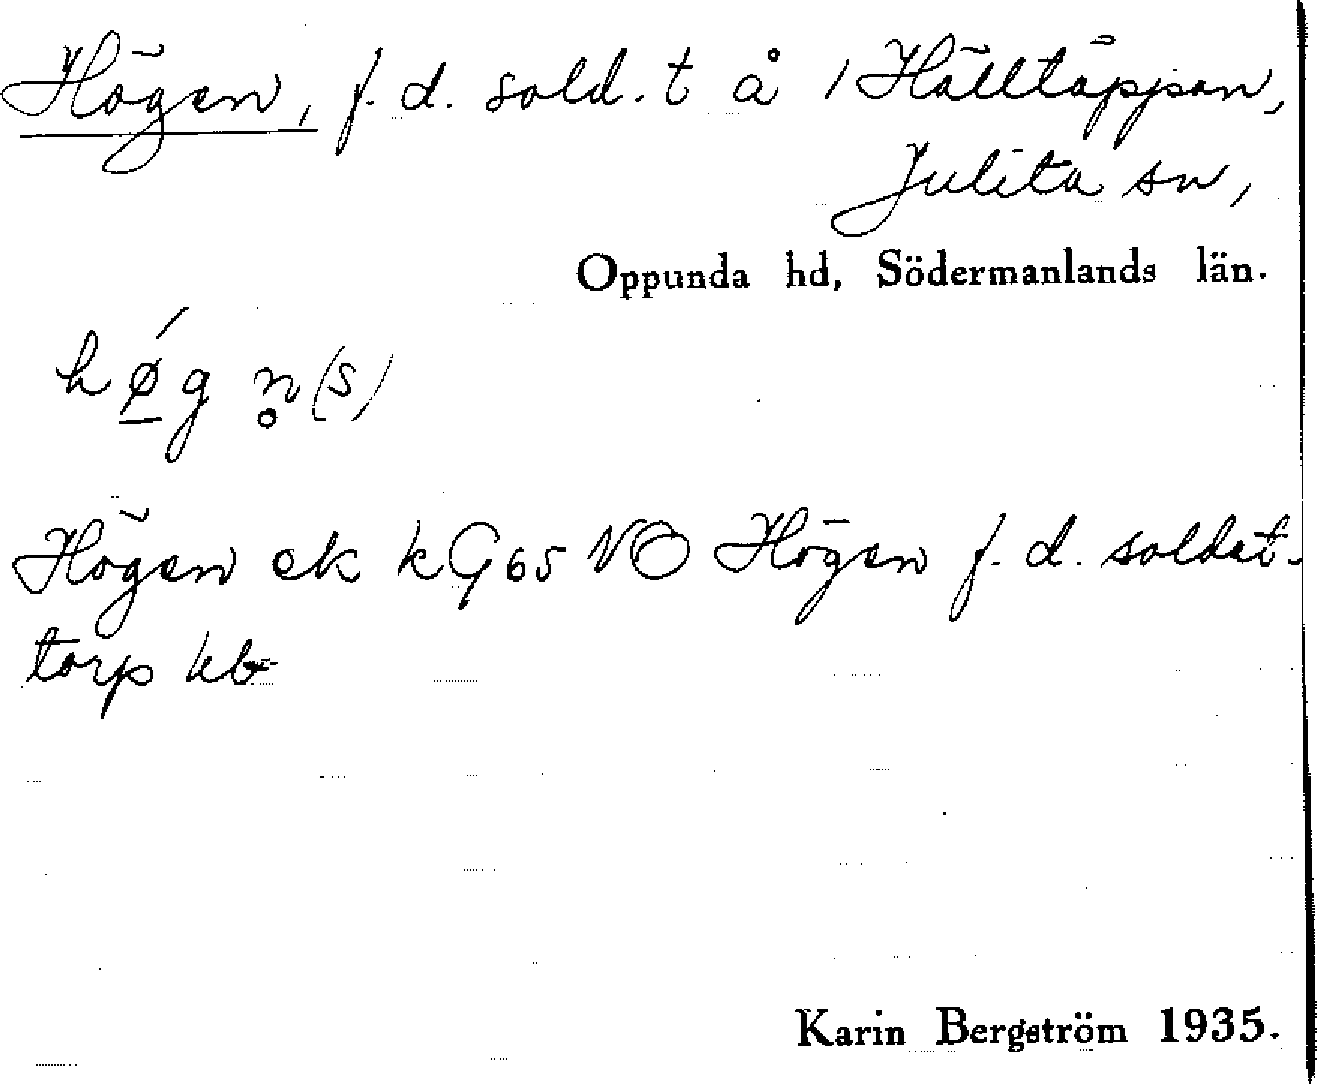 Högen, f. d. sold. t å 1 Hälltäppan,
Julita sn,
Oppunda hd, Södermanlands län.
hǿ̲g n̥(s)
Högen ek kG65 NO Högen f. d. soldat-
torp kb
Karin Bergström 1935.